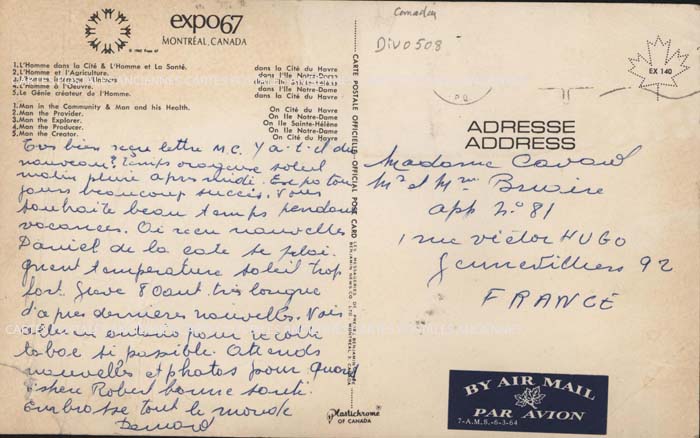 expo67
MONTRÉAL, CANADA
1. L'Homme dans la Cité & L'Homme et La Santé. dans la Cité du Havre
2. L'Homme et l'Agriculture. dans l'Ile Notre-Dame
4. L'Homme à l'Oeuvre. dans l'Ile Notre-Dame
5. Le Génie créateur de l'Homme. dans la Cité du Havre
1. Man in the Community & Man and his Health. On Cité du Havre
2. Man the Provider. On Ile Notre-Dame
3. Man the Explorer. On Ile Sainte-Hélène
4. Man the Producer. On Ile Notre-Dame
5. Man the Creator. On Cité du Havre
Tres bien reçu lettre M.C. Y a-t-il du
nouveau? Temps orageux soleil
matin pluie apres midi. Expo tou
jours beaucoup succès. Vous
souhaite beau temps pendant
vacances. Ai reçu nouvelles
Daniel de la cote se plai
gnent température soleil trop
fort. Greve 8 Aout très longue
d'apres dernieres nouvelles. Vais
aller en
tabac si possible. Attends
nouvelles et photos pour quand
Espere Robert bonne santé
Embrasse tout le monde
Bernard
CARTE POSTALE OFFICIELLE - OFFICIAL POST CARD
Plastichrome
OF CANADA
Canada
Div0508
EX 140
ADRESSE
ADDRESS
Madame
Mr et Mme
app n° 81
1 rue victor HUGO
Gennevilliers 92
FRANCE
BY AIR MAIL
PAR AVION
7-A.M.S.-6-3-64